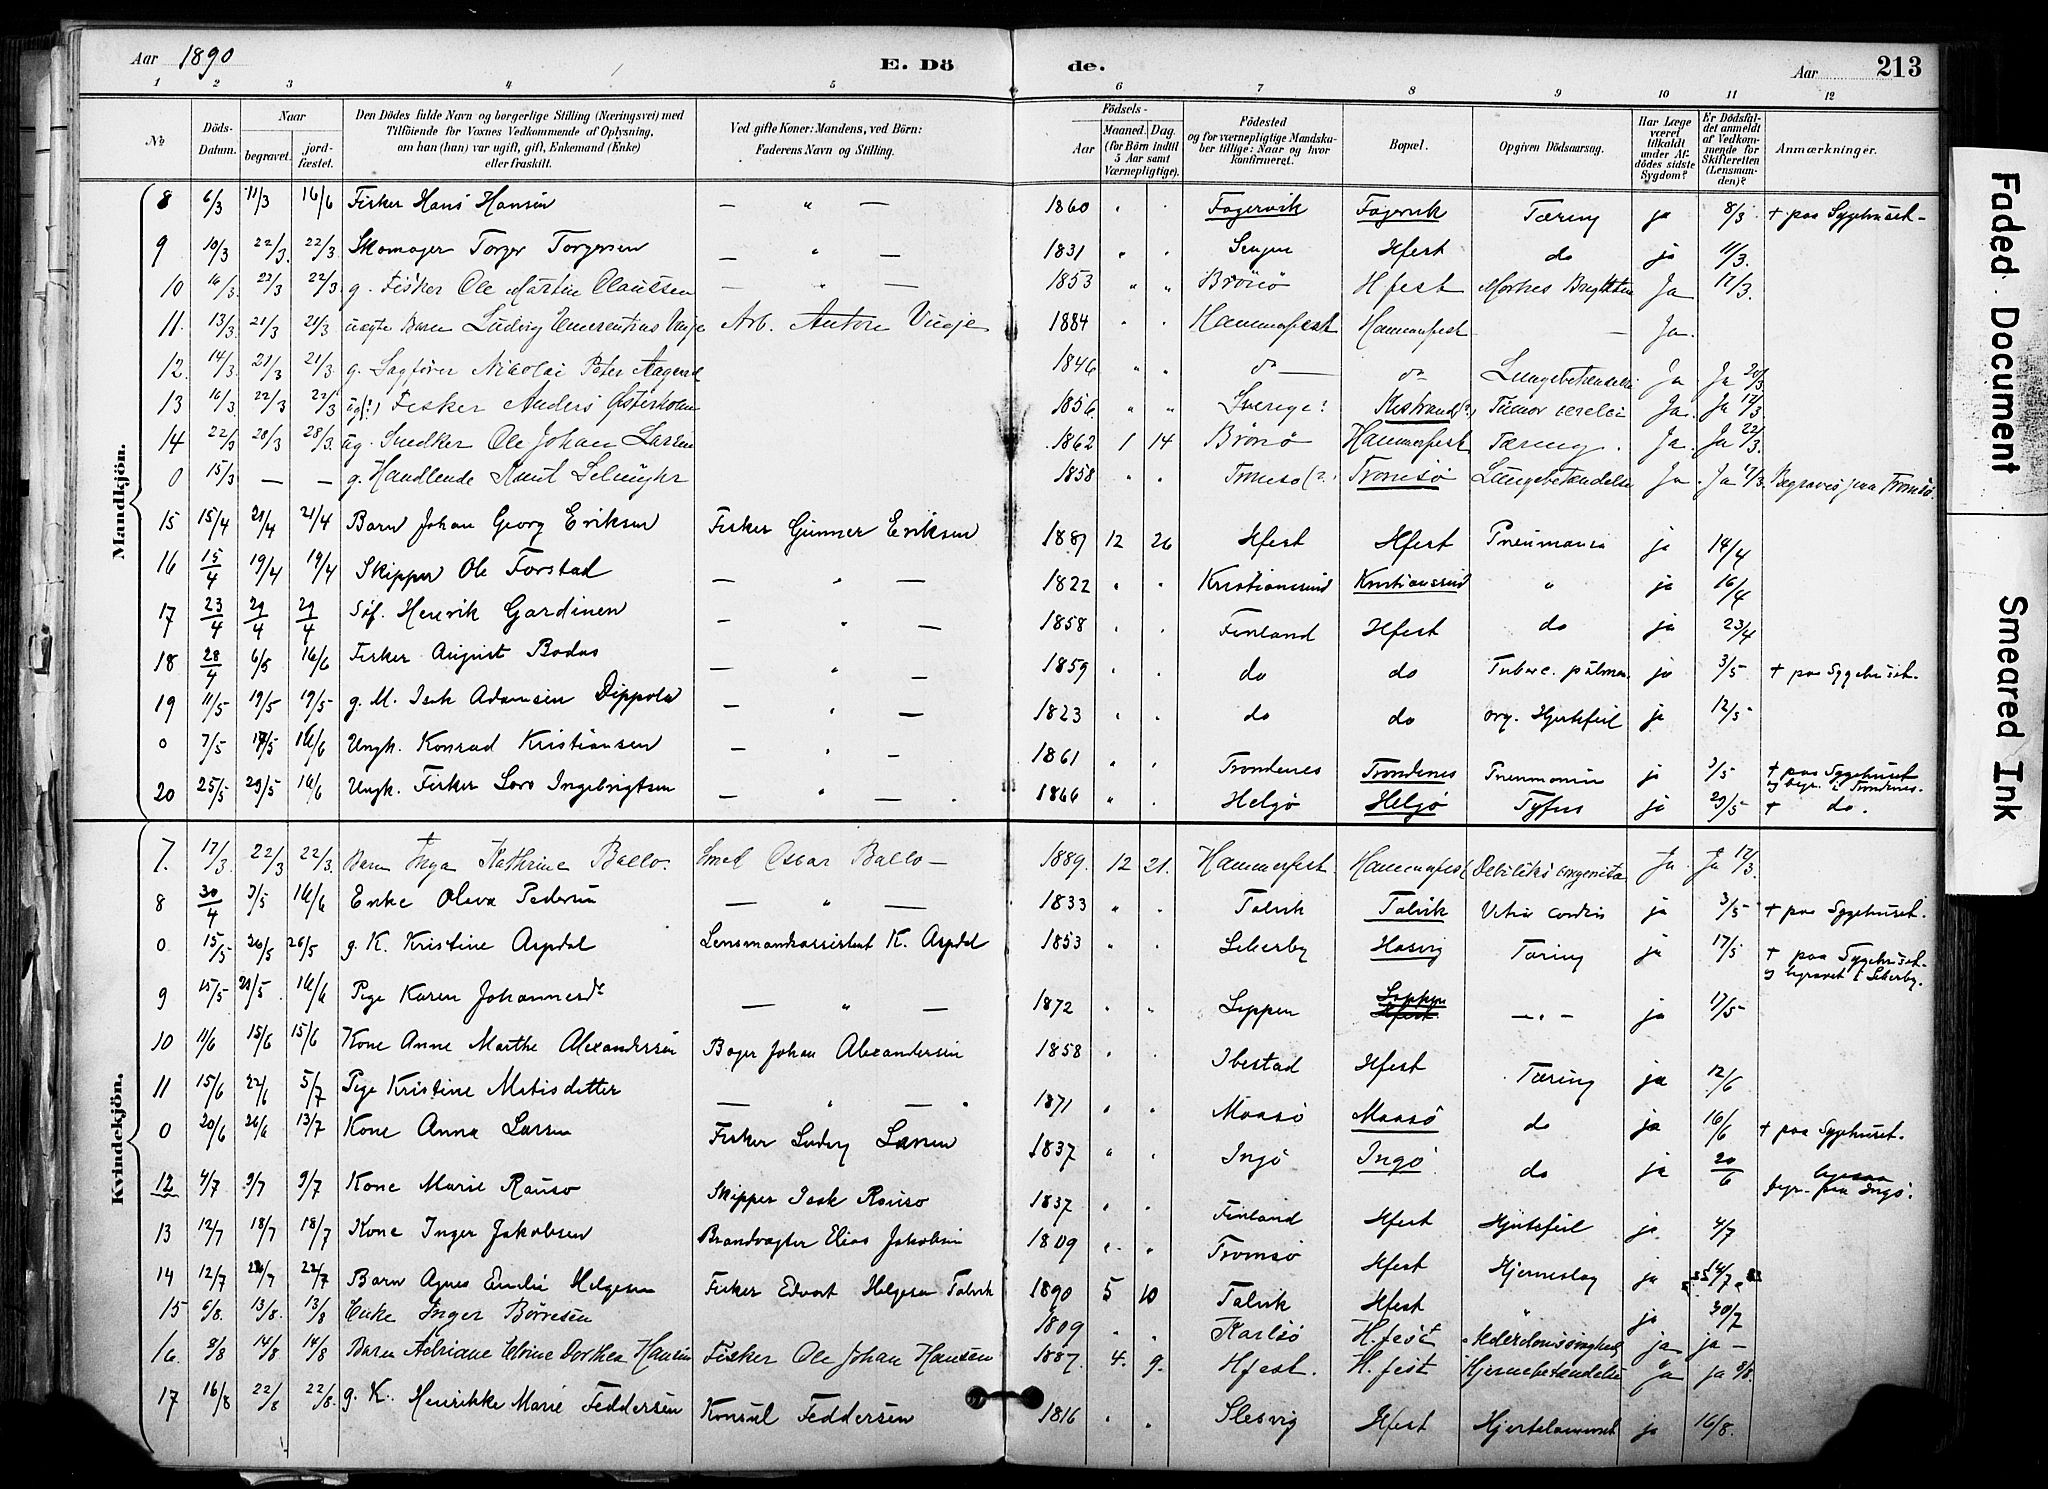 Aar 1890 E. Dö de. Aar 213
1 2 3 4 5 6 7 8 9 10 11 12
No Döds-Datum. Naar begravet. jordfæstet. Den Dödes fulde Navn og borgerlige Stilling (Næringsvei) med Tilföiende for Voxnes Vedkommende af Oplysning, om han (hun) var ugift, gift, Enkemand (Enke) eller fraskilt. Ved gifte Koner: Mandens, ved Börn: Faderens Navn og Stilling. Födsels- Aar Maaned. Dag. (for Börn indtil 5 Aar samt Værnepligtige). Födested og for værnepligtige Mandskaber tillige: Naar og hvor konfirmeret. Bopæl. Opgiven Dödsaarsag. Har Læge været tilkaldt under Afdödes sidste Sygdom? Er Dödsfaldet anmeldt af Vedkommende for Skifteretten (Lensmanden)? Anmærkninger.
Mandkjön.
8 6/3 11/3 16/6 Fisker Hans Hansen — " — 1860 " " Fagervik Fagervik Tæring ja 8/3 + paa Sygehuset.
9 10/3 22/3 22/3 Skomager Torger Torgersen — " — 1831 " " Senjen Hfest do ja 11/3.
10 16/3 22/3 22/3 g. Fisker Ole Martin Olaussen — " — 1853 " " Brönö Hfest Morbus Brightii Ja 17/3.
11. 13/3 21/3 21/3 uægte Barn Ludvig Arb. Antore 1884 " " Hammerfest Hammerfest — Ja.
12. 14/3 21/3 21/3 g. Sagförer Nikolai Peter Aagaard 1846 " " do — do Lungebetændelse Ja Ja 20/3
13 16/3. 22/3 22/3 ug(?) Fisker Anders Østerholm 1856. " " Sverige? Kistrand(?) Tumor cerebri Ja. Ja 17/3.
14 22/3 28/3 28/3. ug. Snedker Ole Johan Larsen 1862 1 14 Brönö Hammerfest Tæring. Ja. Ja 22/3.
0 15/3 — — g. Handlende Knut 1858 " " Tromsø (?) Tromsö Lungebetændelse Ja. Ja Begraves paa Tromsö.
15 15/4 21/4 21/4 Barn Johan Georg Eriksen Fisker Gunner Eriksen 1887 12 26 Hfest Hfest Pneumonia ja 14/4
16 15/4 19/4 19/4 Skipper Ole Forstad — " — 1822 " " Kristianssund Kristianssund " ja 16/4
17 23/4 29/4 29/4 Söf. Henrik Gardinen — " — 1858 " " Finland Hfest do ja 23/4
18 28/4 6/5 16/6 Fisker August Bodas — " — 1859 " " do do Tuberc. pulmon. ja 3/5 + paa Sygehuset.
19 11/5 19/5 19/5 g. M. Isak Adamsen Dippola — " — 1823 " " do do org. Hjertefeil ja 12/5
0 7/5 17/5 16/6 Ungk. Konrad Kristiansen — " — 1861 " " Trondenes Trondenes Pneumonia ja 7/5 + paa Sygehuset og begr. i Trondenes.
20 25/5 29/5 16/6 Ungk. Fisker Lars Ingebrigtsen — " — 1866 " " Helgö Helgö Tyfus ja 29/5 + do.
Kvindekjön.
7. 17/3 22/3 22/3. Barn Inga Kathrine Ballo. Smed Oscar Ballo — 1889. 12 21. Hammerfest. Hammerfest Debilitas congenita Ja Ja 17/3.
8 30/4 7/5 16/6 Enke Oleva Pedersen — " — 1833 " " Talvik Talvik Vitia cordis ja 3/5 + paa Sygehuset.
0 15/5 26/5 26/5 g. K. Kristine Aspdal Lensmandsassistent K. Aspdal 1853 " " Leberby Hasvig Tæring ja 17/5 + paa Sygehuset og begravet i Leberby.
9 15/5 21/5. 16/6 Pige Karen Johannesd. — " — 1872 " " Loppen Loppen — " — ja 17/5
10 11/6 15/6 15/6 Kone Anne Marthe Alexandersen Bager Johan Alexandersen 1858 " " Ibestad Hfest Tæring ja 12/6
11 15/6 22/6 5/7 Pige Kristine Matisdatter — " — 1871 " " Maasö Maasö do ja 16/6 + paa Sygehuset.
0 20/6 26/6 13/7 Kone Anna Larsen Fisker Ludvig Larsen 1837 " " Ingö Ingö do ja 20/6 begr. paa Ingö.
12 4/7 9/7 9/7 Kone Marie Rauso Skipper Isak Rauso 1837 " " Finland Hfest Hjertefeil ja. 4/7
13 12/7 18/7 18/7 Kone Inger Jakobsen Brandvagter Elias Jakobsen 1809 " " Tromsö Hfest Hjerneslag ja 14/7
14 12/7 22/7 22/7 Barn Agnes Emilie Helgesen Fisker Edvart Helgesen Talvik 1890 5 10 Talvik Hfest " ja 30/7
15 6/8. 13/8. 13/8 Enke Inger Börresen 1809 " " Karlsö H.fest Alderdomssvaghed ja ja —
16. 8/8 14/8 14/8 Barn Adriane Elvine Dorthea Hansen Fisker Ole Johan Hansen 1887. 4. 9. Hfest. H.fest Hjernebetændelse Ja ja 8/8.
17 16/8 22/8 22/8. g. K. Henrikke Marie Feddersen Konsul Feddersen 1816 " " Slesvig Hfest Hjertelammelse ja 16/8.
Faded Document
Smeared Ink